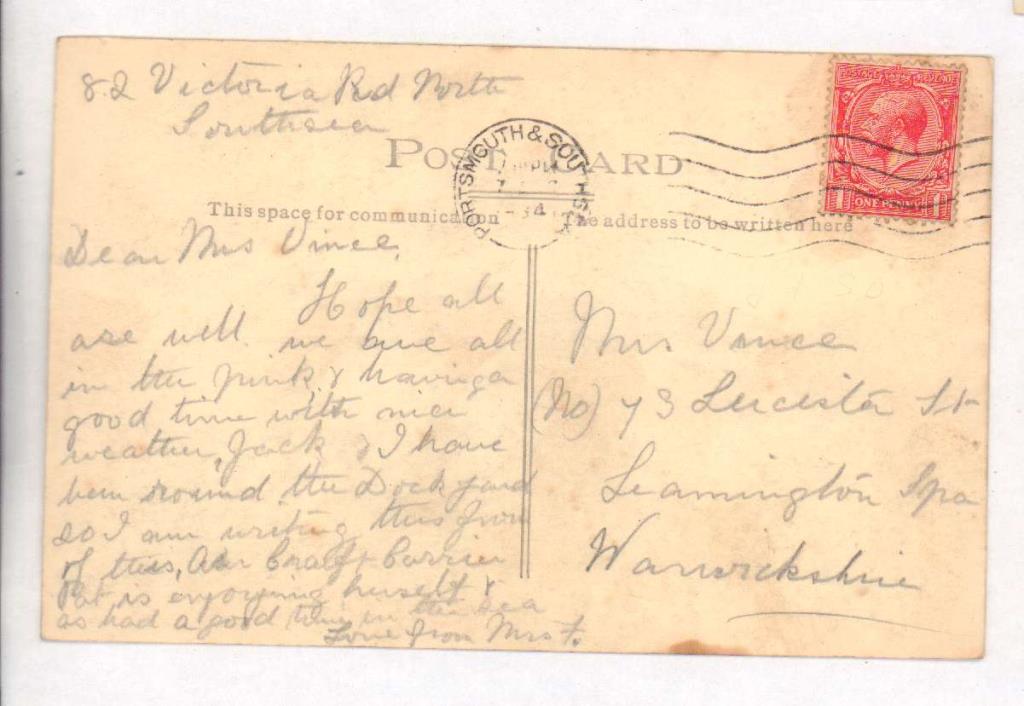 82 Victoria Rd North
Southsea
POST CARD
PORTSMOUTH & SOUTHSEA
POSTAGE REVENUE
1 ONE PENNY 1
This space for communication
The address to be written here
Dear Mrs Vince,
Hope all
are well. we are all
in the pink, & having a
good time with nice
weather, Jack & I have
been round the Dockyard
so I am writing this from
of this, Air Craft Carrier
Pat is enjoying herself &
as had a good time in the sea
Love from Mrs F.
Mrs Vince
(No) 73 Leicister St
Leamington Spa
Warwickshire